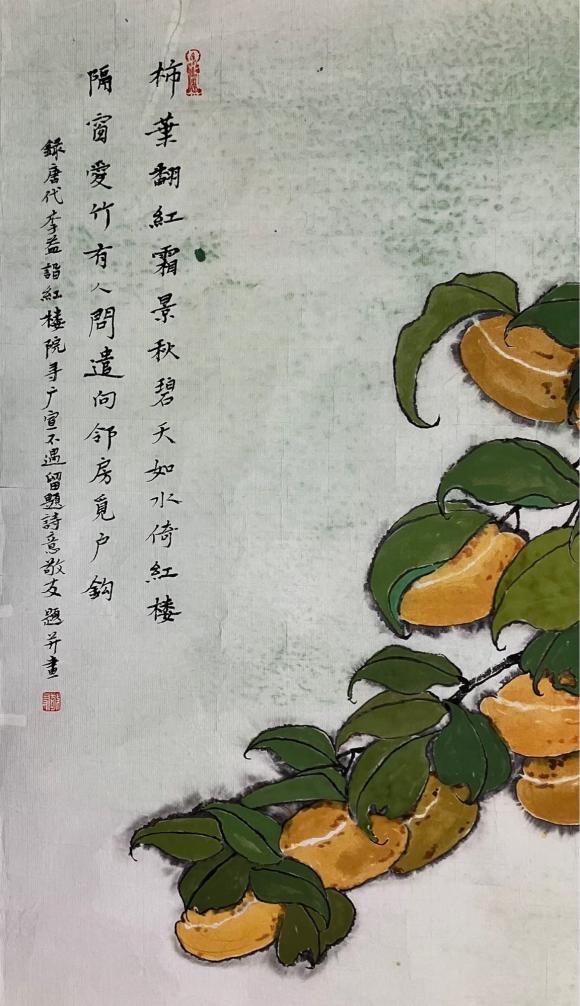 柿葉翻紅霜景秋碧天如水倚紅楼
隔窗愛竹有人問遣向邻房覓户鈎
録唐代李益詣紅楼院寻广宣不遇留題詩意敬友題并畫